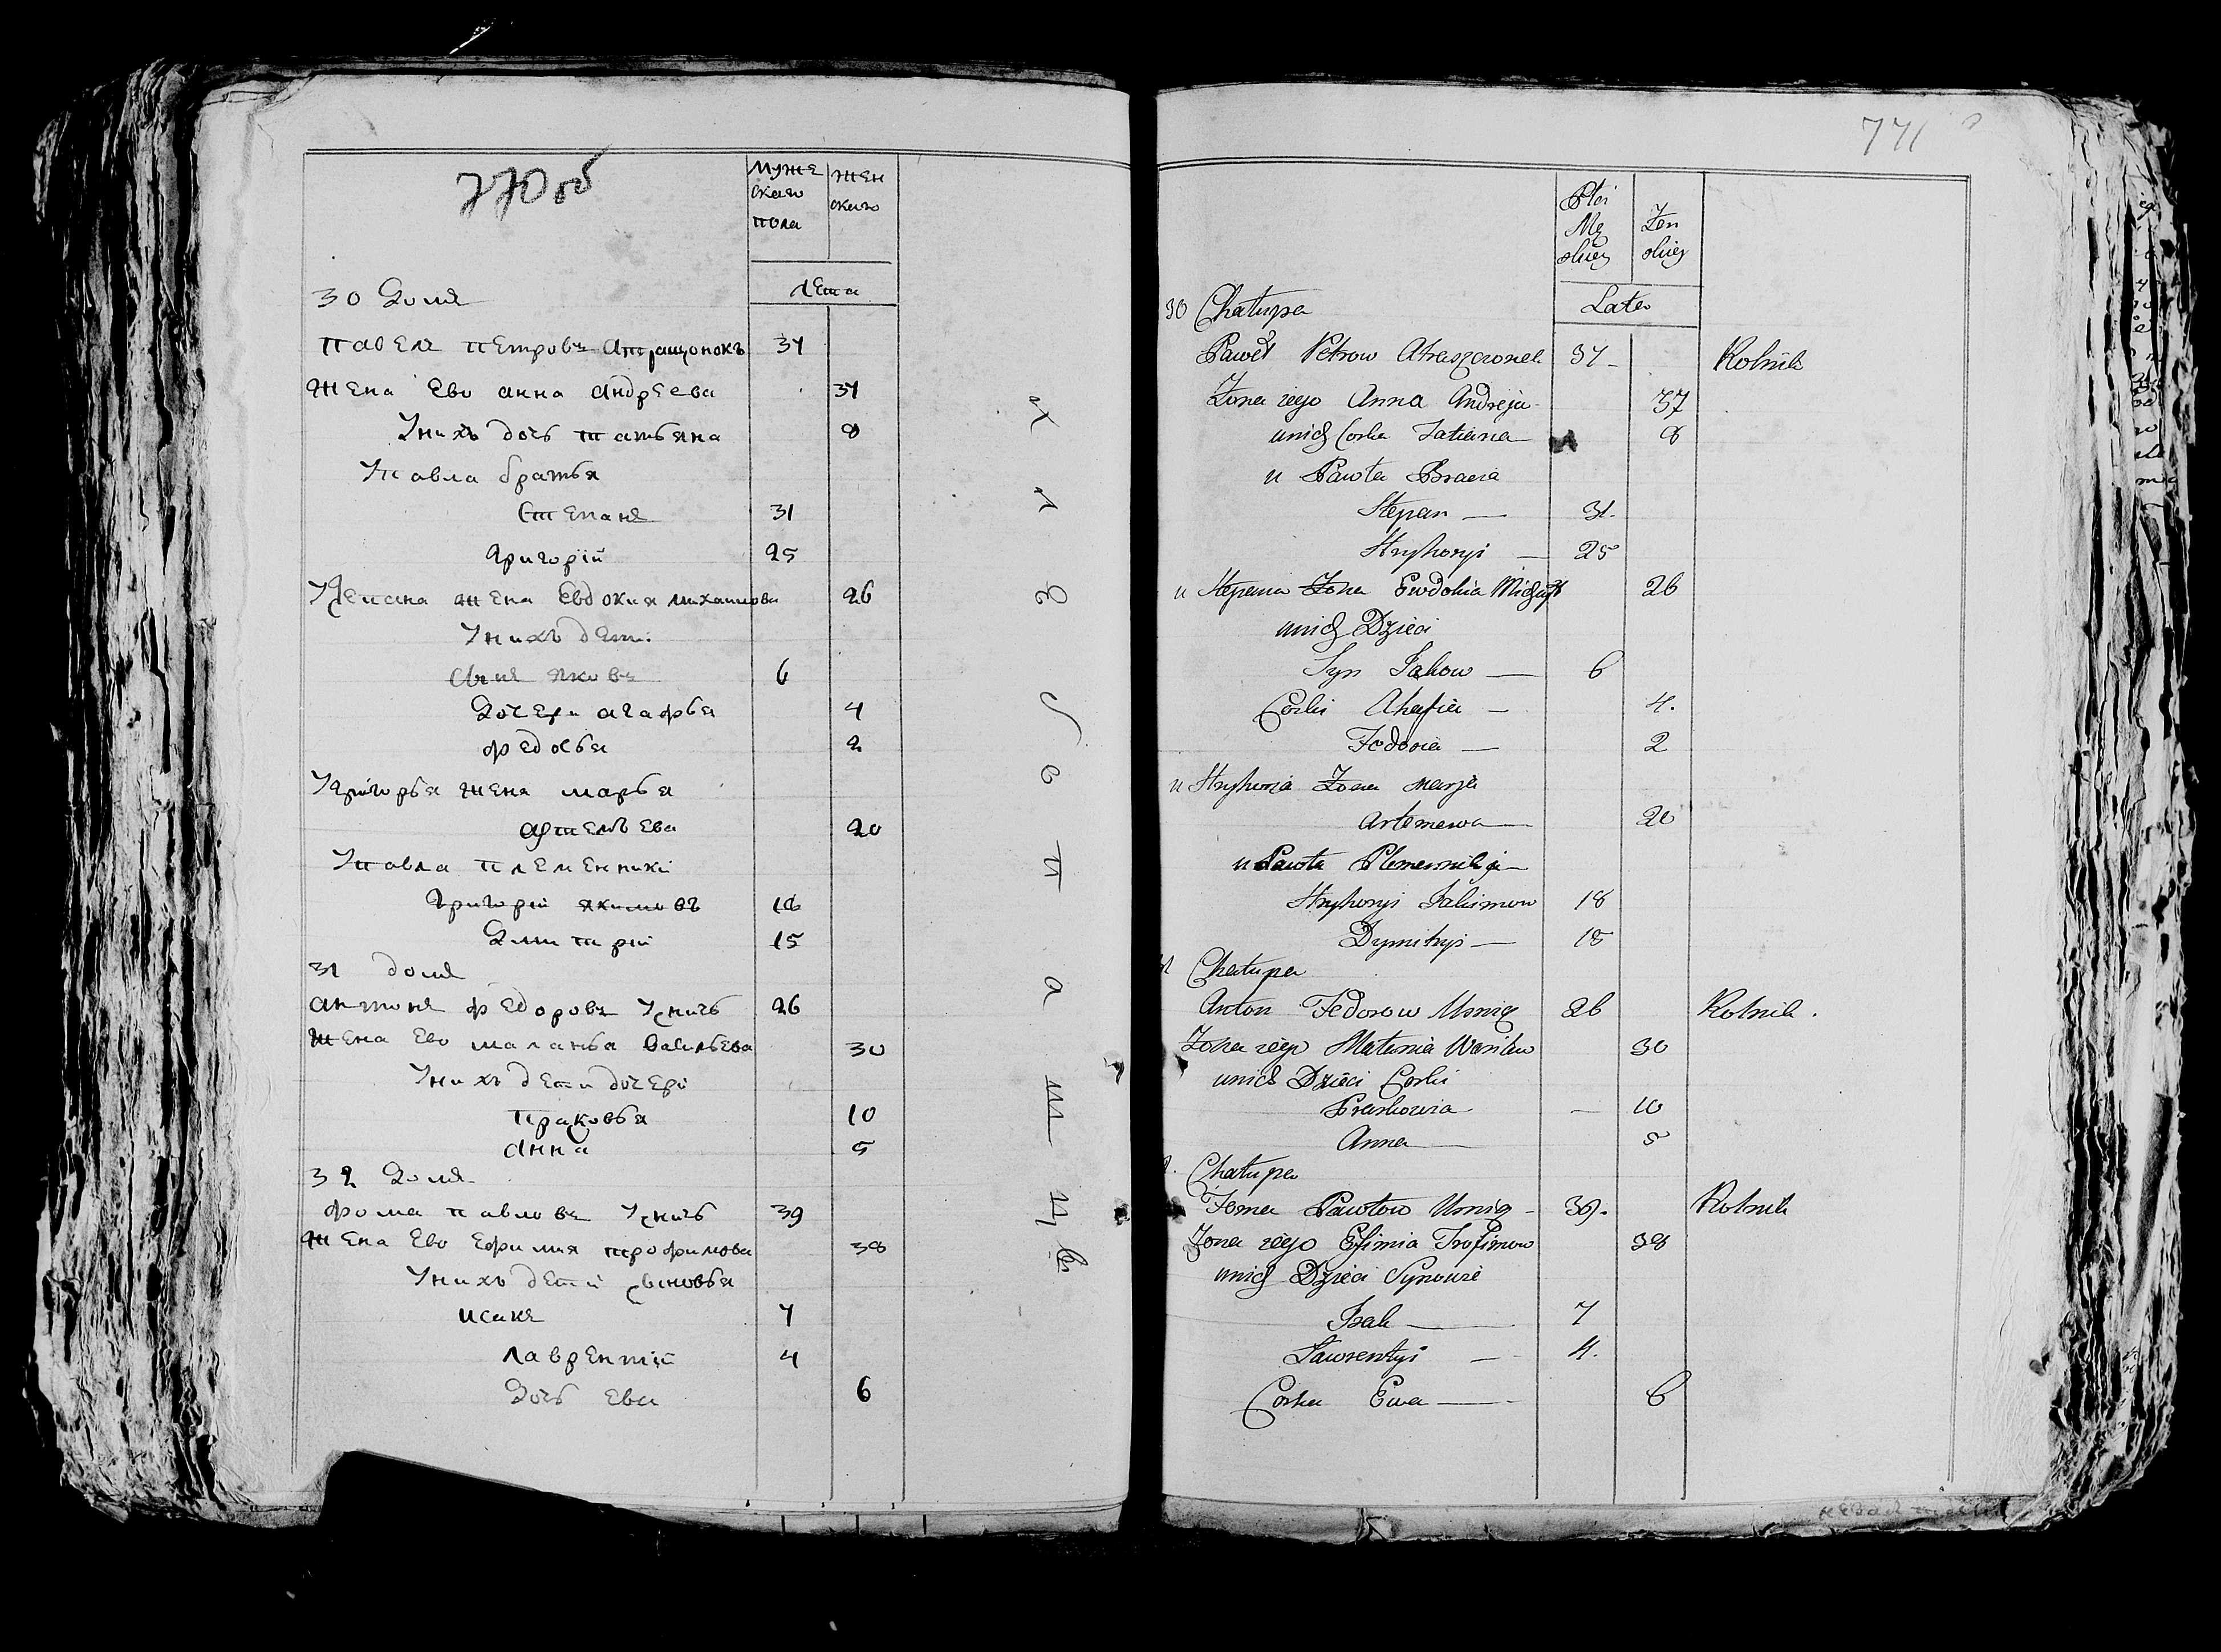 770 об
муже
скаго
пола
жен
скаго
лета
30 Домъ
Павелъ Петровъ Атращонокъ 37
жена Ево Анна Андреева 37
Унихъ дочь Татьяна 8
У Павла братья
Степанъ 31
Григорій 25
У Степана жена Евдокия Михаилова 26
Унихъ дети
Сынъ Яковъ 6
Дочери Агафья 4
Федосья 2
У Григорья жена Марья
Артемьева 20
У Павла племенники
Григорій Якимовъ 18
Дмитрій 15
31 домъ
Антонъ Федоровъ 26
жена Ево Маланья Васильева 30
Унихъ дети дочери
Праковья 10
Анна 5
32 Домъ
Фома Павловъ 39
жена Ево Ефимия Трофимова 38
Унихъ дети сыновья
Исакъ 7
Лаврентій 4
Дочь Ева 6
771
Płci
Mę
skiey
Żen
skiey
Lata
30 Chałupa
Paweł Petrow Atraszczonek 37 Rolnik
Żona iego Anna Andreja 37
unich Corka Tatiana 8
u Pawła Bracia
Stepan 31.
Hryhoryi 25
u Stepana Żona Ewdokia 26
unich Dzieci
Syn Jakow 6
Corki Ahafia 4.
Fedosia 2
u Hryhoria Żona Marja
Artemewa 20
u Pawła Plemenniki
Hryhoryi Jakimow 18
Dymitryi 15
Chałupa
Anton Fedorow 26 Rolnik.
Żona iego Matunia Wasilew 30
unich Dzieci Corki
Praskowia — 10
Anna 5
Chałupa
Foma Pawłow 39. Rolnik
Żona iego Efimia Trofimow 38
unich Dzieci Synowie
Isak 7
Lawrentyi 4.
Corka Ewa 6